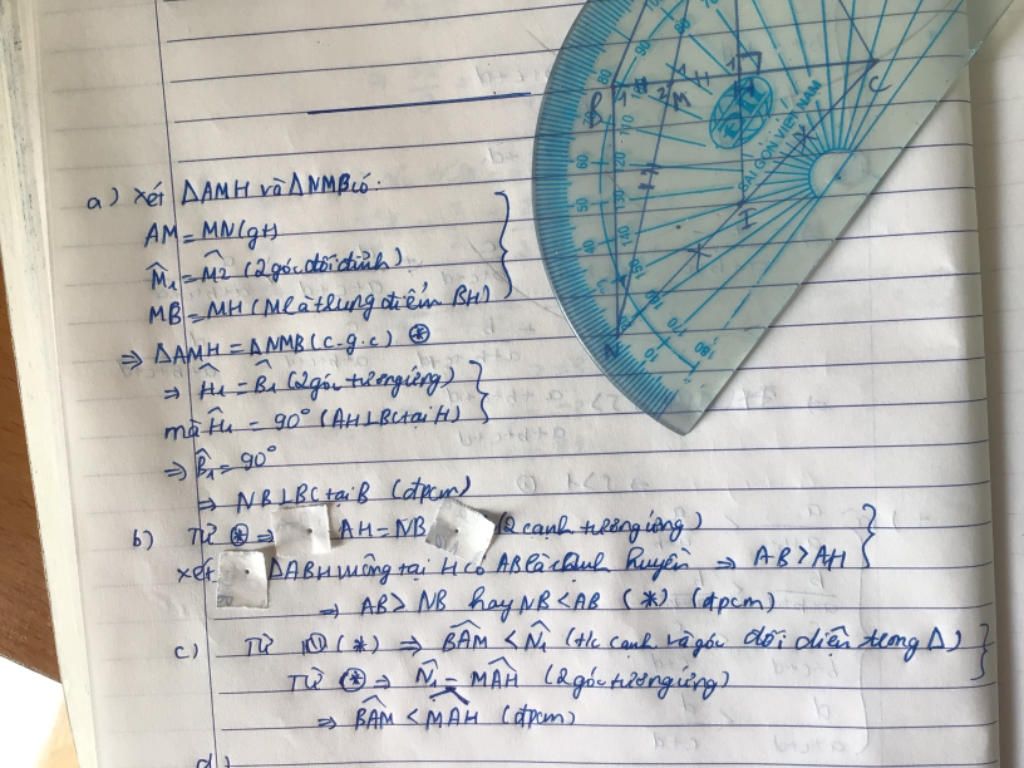 a) Xét ΔAMH và ΔNMB có:
AM = MN (gt)
M̂₁ = M̂₂ (2 góc đối đỉnh)
MB = MH (M là trung điểm BH)
⇒ ΔAMH = ΔNMB (c.g.c) ⊛
⇒ Ĥ₁ = B̂₁ (2 góc tương ứng)
mà Ĥ₁ = 90° (AH ⊥ BC tại H)
⇒ B̂₁ = 90°
⇒ NB ⊥ BC tại B (đpcm)
b) Từ ⊛ ⇒ AH = NB (2 cạnh tương ứng)
xét ΔABH vuông tại H có AB là cạnh huyền ⇒ AB > AH
⇒ AB > NB hay NB < AB (*) (đpcm)
c) Từ (*) ⇒ BÂM < N̂₁ (t/c cạnh và góc đối diện trong Δ)
Từ ⊛ ⇒ N̂₁ = MÂH (2 góc tương ứng)
⇒ BÂM < MÂH (đpcm)
d)
B 1 2 M H 1 C
SAI GON VIET NAM
I
N